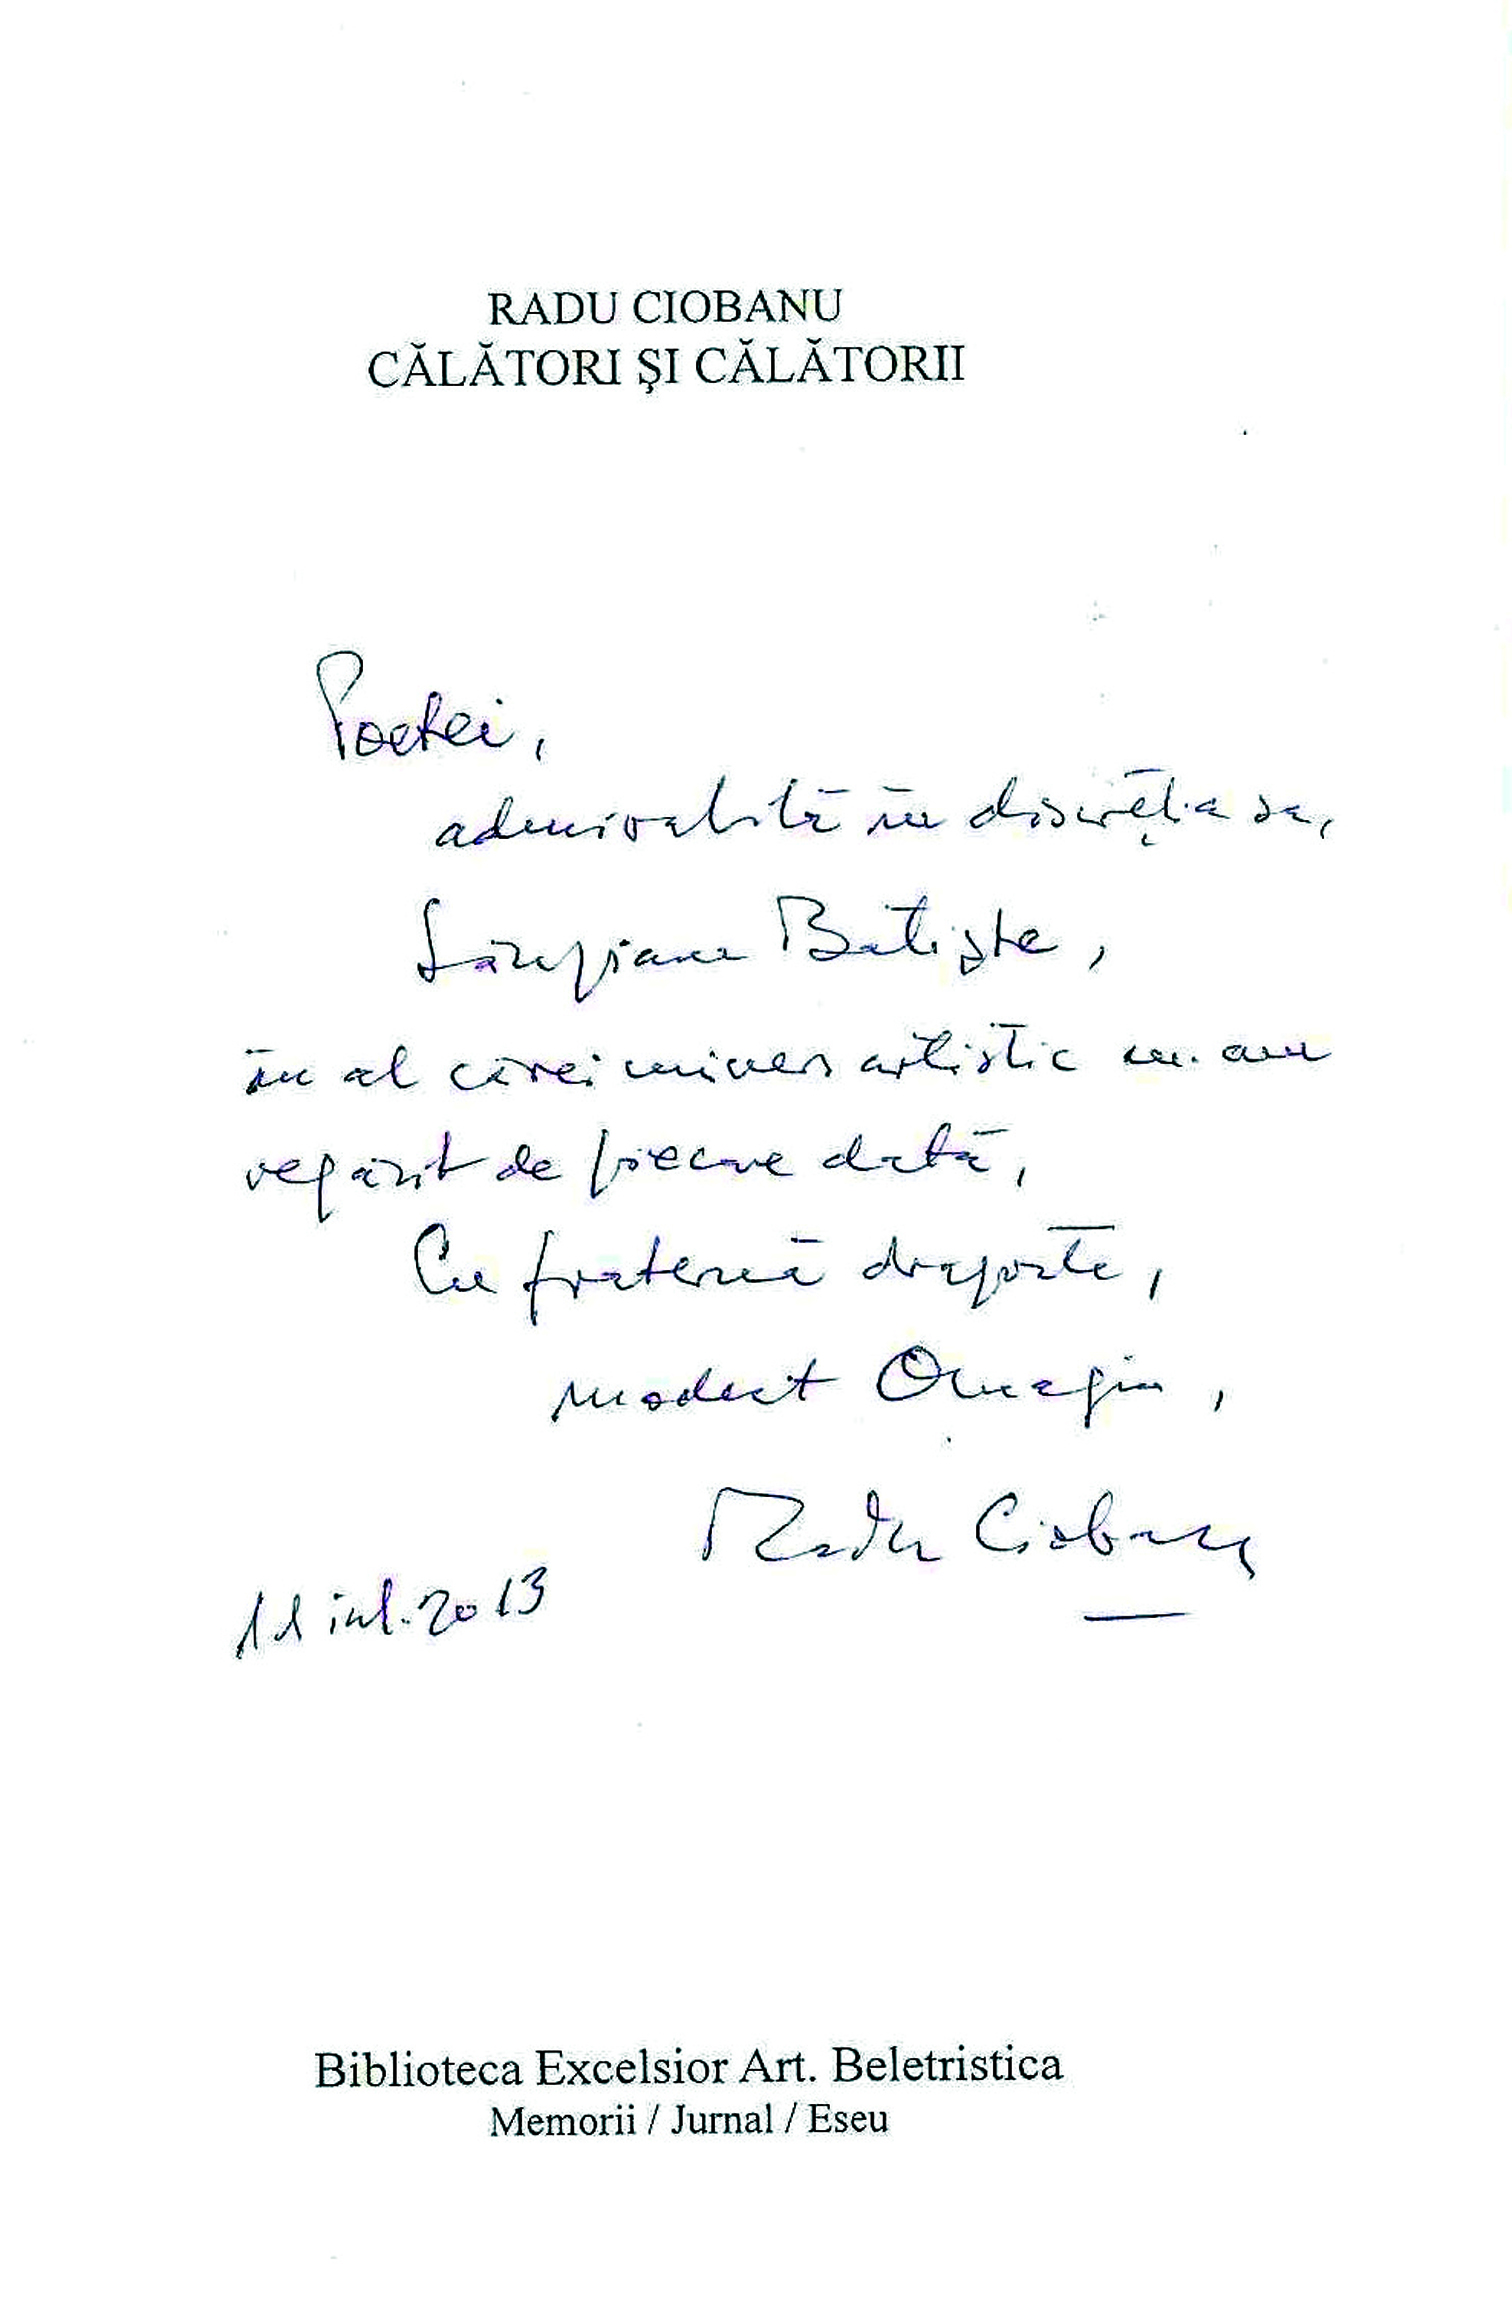 RADU CIOBANU
CĂLĂTORI ŞI CĂLĂTORII
Poetei,
admirabilă în discreţia sa,
Sânziana Batişte,
în al cărei univers artistic m-am
regăsit de fiecare dată,
Cu fraternă dragoste,
modest Omagiu,
Radu Ciobanu
11 iul. 2013
Biblioteca Excelsior Art. Beletristica
Memorii / Jurnal / Eseu